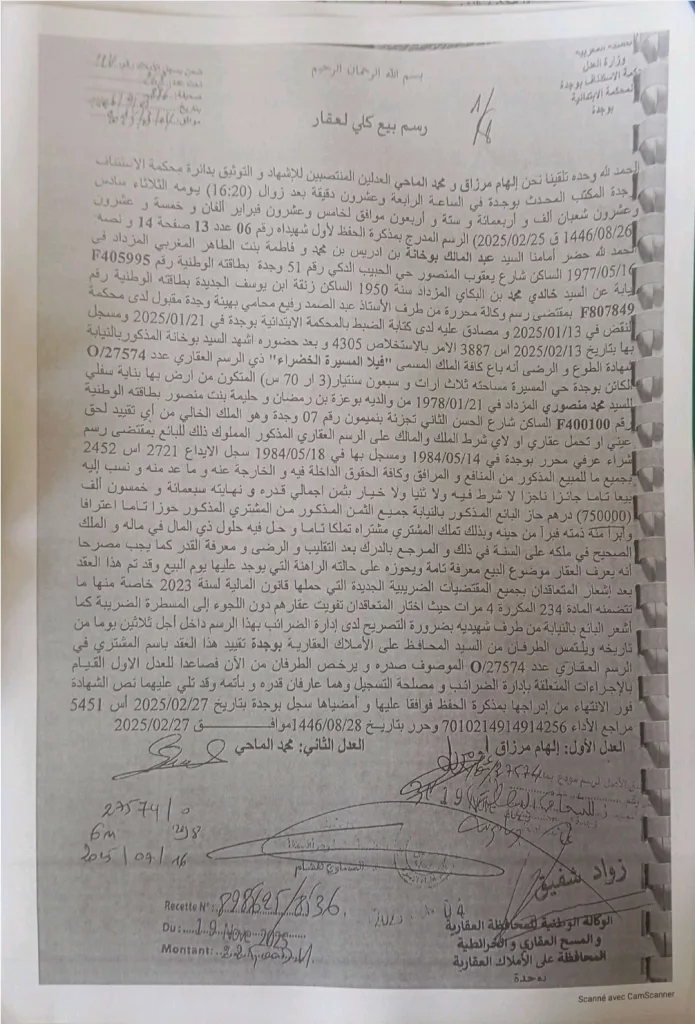 وزارة العدل
محكمة الاستئناف بوجدة
المحكمة الابتدائية
بوجدة
بسم الله الرحمان الرحيم
رسم بيع كلي لعقار
1/8
الحمد لله وحده تلقينا نحن إلهام مرزاق و محمد الماحي العدلين المنتصبين للإشهاد و التوثيق بدائرة محكمة الاستئناف
وجدة المكتب المحدث بوجدة في الساعة الرابعة وعشرون دقيقة بعد زوال (16:20) يومه الثلاثاء سادس
وعشرون شعبان ألف و أربعمائة و ستة و أربعون موافق لخامس وعشرون فبراير ألفان و خمسة و عشرون
1446/08/26 ق 2025/02/25) الرسم المدرج بمذكرة الحفظ لأول شهيداه رقم 06 عدد 13 صفحة 14 و نصه
الحمد لله حضر أمامنا السيد عبد المالك بوخانة بن ادريس بن محمد و فاطمة بنت الطاهر المغربي المزداد في
1977/05/16 الساكن شارع يعقوب المنصور حي الحبيب الدكي رقم 51 وجدة بطاقته الوطنية رقم F405995
نيابة عن السيد خالدي محمد بن البكاي المزداد سنة 1950 الساكن زنقة ابن يوسف الجديدة بطاقته الوطنية رقم
F807849 بمقتضى رسم وكالة محررة من طرف الأستاذ عبد الصمد رفيع محامي بهيئة وجدة مقبول لدى محكمة
النقض في 2025/01/13 و مصادق عليه لدى كتابة الضبط بالمحكمة الابتدائية بوجدة في 2025/01/21 ومسجل
بها بتاريخ 2025/02/13 أس 3887 الامر بالاستخلاص 4305 و بعد حضوره اشهد السيد بوخانة المذكور بالنيابة
شهادة الطوع و الرضى أنه باع كافة الملك المسمى "فيلا المسيرة الخضراء" ذي الرسم العقاري عدد O/27574
الكائن بوجدة حي المسيرة مساحته ثلاث ارات و سبعون سنتيار(3 ار 70 س) المتكون من ارض بها بناية سفلي
للسيد محمد منصوري المزداد في 1978/01/21 من والديه بوعزة بن رمضان و حليمة بنت منصور بطاقته الوطنية
F400100 الساكن شارع الحسن الثاني تجزئة بنميمون رقم 07 وجدة وهو الملك الخالي من أي تقييد لحق
عيني او تحمل عقاري او لاي شرط الملك والمالك على الرسم العقاري المذكور المملوك ذلك للبائع بمقتضى رسم
شراء عرفي محرر بوجدة في 1984/05/14 ومسجل بها في 1984/05/18 سجل الايداع 2721 اس 2452
بجميع ما للمبيع المذكور من المنافع و المرافق وكافة الحقوق الداخلة فيه و الخارجة عنه و ما عد منه و نسب إليه
بيعا تاما جائزا ناجزا لا شرط فيه ولا ثنيا ولا خيار بثمن اجمالي قدره و نهايته سبعمائة و خمسون ألف
(750000) درهم حاز البائع المذكور بالنيابة جميع الثمن المذكور من المشتري المذكور حوزا تاما اعترافا
وأبرأ منه ذمته فبرأ من حينه وبذلك تملك المشتري مشتراه تملكا تاما و حل فيه حلول ذي المال في ماله و الملك
الصحيح في ملكه على السنة في ذلك و المرجع بالدرك بعد التقليب و الرضى و معرفة القدر كما يجب مصرحا
أنه يعرف العقار موضوع البيع معرفة تامة ويحوزه على حالته الراهنة التي يوجد عليها يوم البيع وقد تم هذا العقد
بعد إشعار المتعاقدان بجميع المقتضيات الضريبية الجديدة التي حملها قانون المالية لسنة 2023 خاصة منها ما
تتضمنه المادة 234 المكررة 4 مرات حيث اختار المتعاقدان تفويت عقارهم دون اللجوء إلى المسطرة الضريبة كما
أشعر البائع بالنيابة من طرف شهيديه بضرورة التصريح لدى إدارة الضرائب بهذا الرسم داخل أجل ثلاثين يوما من
تاريخه ويلتمس الطرفان من السيد المحافظ على الأملاك العقارية بوجدة تقييد هذا العقد باسم المشتري في
الرسم العقاري عدد O/27574 الموصوف صدره و يرخص الطرفان من الآن فصاعدا للعدل الاول القيام
بالإجراءات المتعلقة بإدارة الضرائب و مصلحة التسجيل وهما عارفان قدره و بأتمه وقد تلي عليهما نص الشهادة
فور الانتهاء من إدراجها بمذكرة الحفظ فوافقا عليها و أمضياها سجل بوجدة بتاريخ 2025/02/27 أس 5451
مراجع الأداء 7010214914914256 وحرر بتاريخ 1446/08/28 موافق 2025/02/27
العدل الأول: إلهام مرزاق العدل الثاني: محمد الماحي
27574/0
زواد شفيق
Recette N°: 898695/8536
Du: 19 NOV 2025
Montant:
الوكالة الوطنية للمحافظة العقارية
و المسح العقاري و الخرائطية
المحافظة على الأملاك العقارية
بوجدة
Scanné avec CamScanner